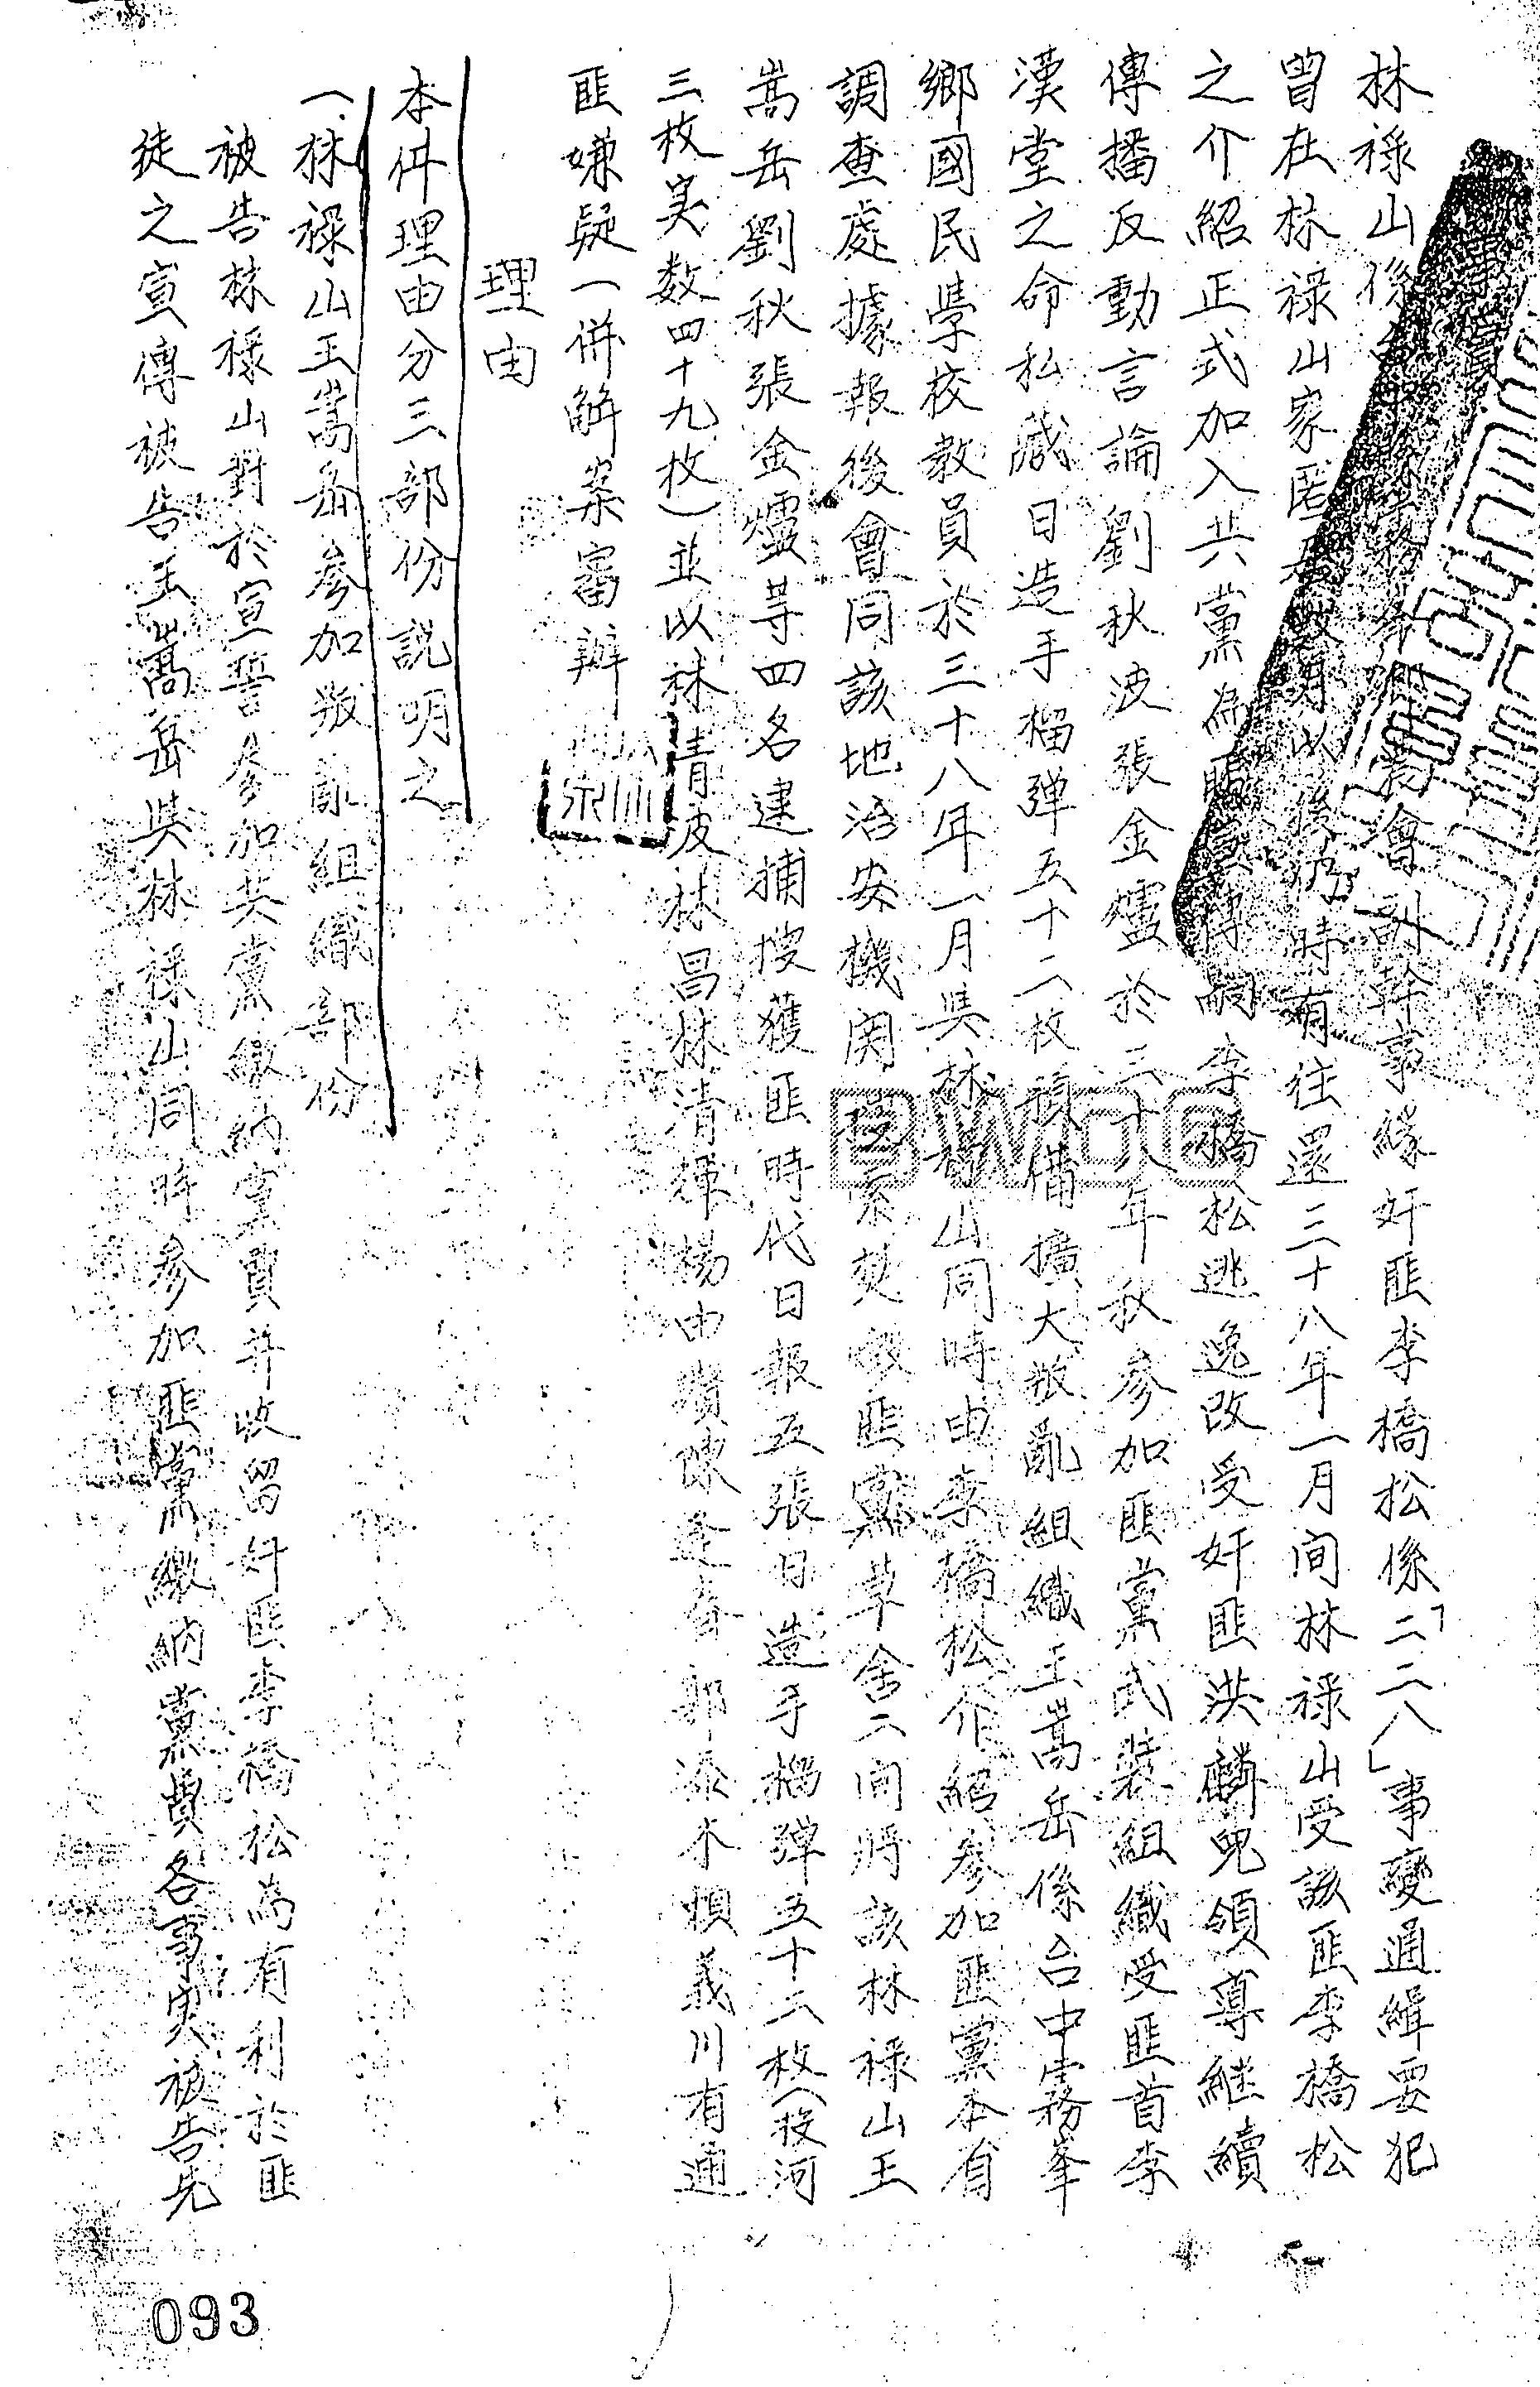 事實
林祿山係台中縣霧峯鄉農會計幹事緣奸匪李橋松係「二二八」事變通緝要犯
曾在林祿山家匿居數月以後仍時有往還三十八年一月间林祿山受該匪李橋松
之介紹正式加入共黨為匪李橋松逃逸改受奸匪洪麟兒領導継續
傳播反動言論劉秋波張金爐於三十八年秋參加匪黨武裝組織受匪首李
漢堂之命私藏日造手榴弹五十二枚預備擴大叛亂組織王嵩岳係台中霧峯
鄉國民學校教員於三十八年一月吳林祿山同時由李橋松介紹參加匪黨本省
調查處據報後會同該地治安機関焚毀匪窩草舍二间将該林祿山王
嵩岳劉秋張金爐等四名逮捕搜獲匪時代日報五張日造手榴弹五十二枚（投河
三枚実数四十九枚）並以林清波林昌林清揮楊由讚陳逢春郭添木賴義川有通
匪嫌疑一併解案審辦
理由
本件理由分三部份説明之
一、林祿山王嵩岳參加叛亂組織部份
被告林祿山對於宣誓參加共黨繳納黨費并收留奸匪李橋松為有利於匪
徒之宣傳被告王嵩岳吳林祿山同時參加匪黨繳納黨費各事実被告先
BWDC
093